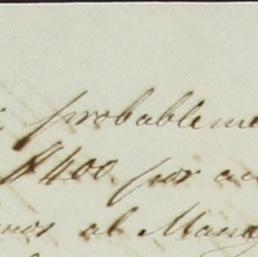 probableme
$400. por ac
nos al Mana